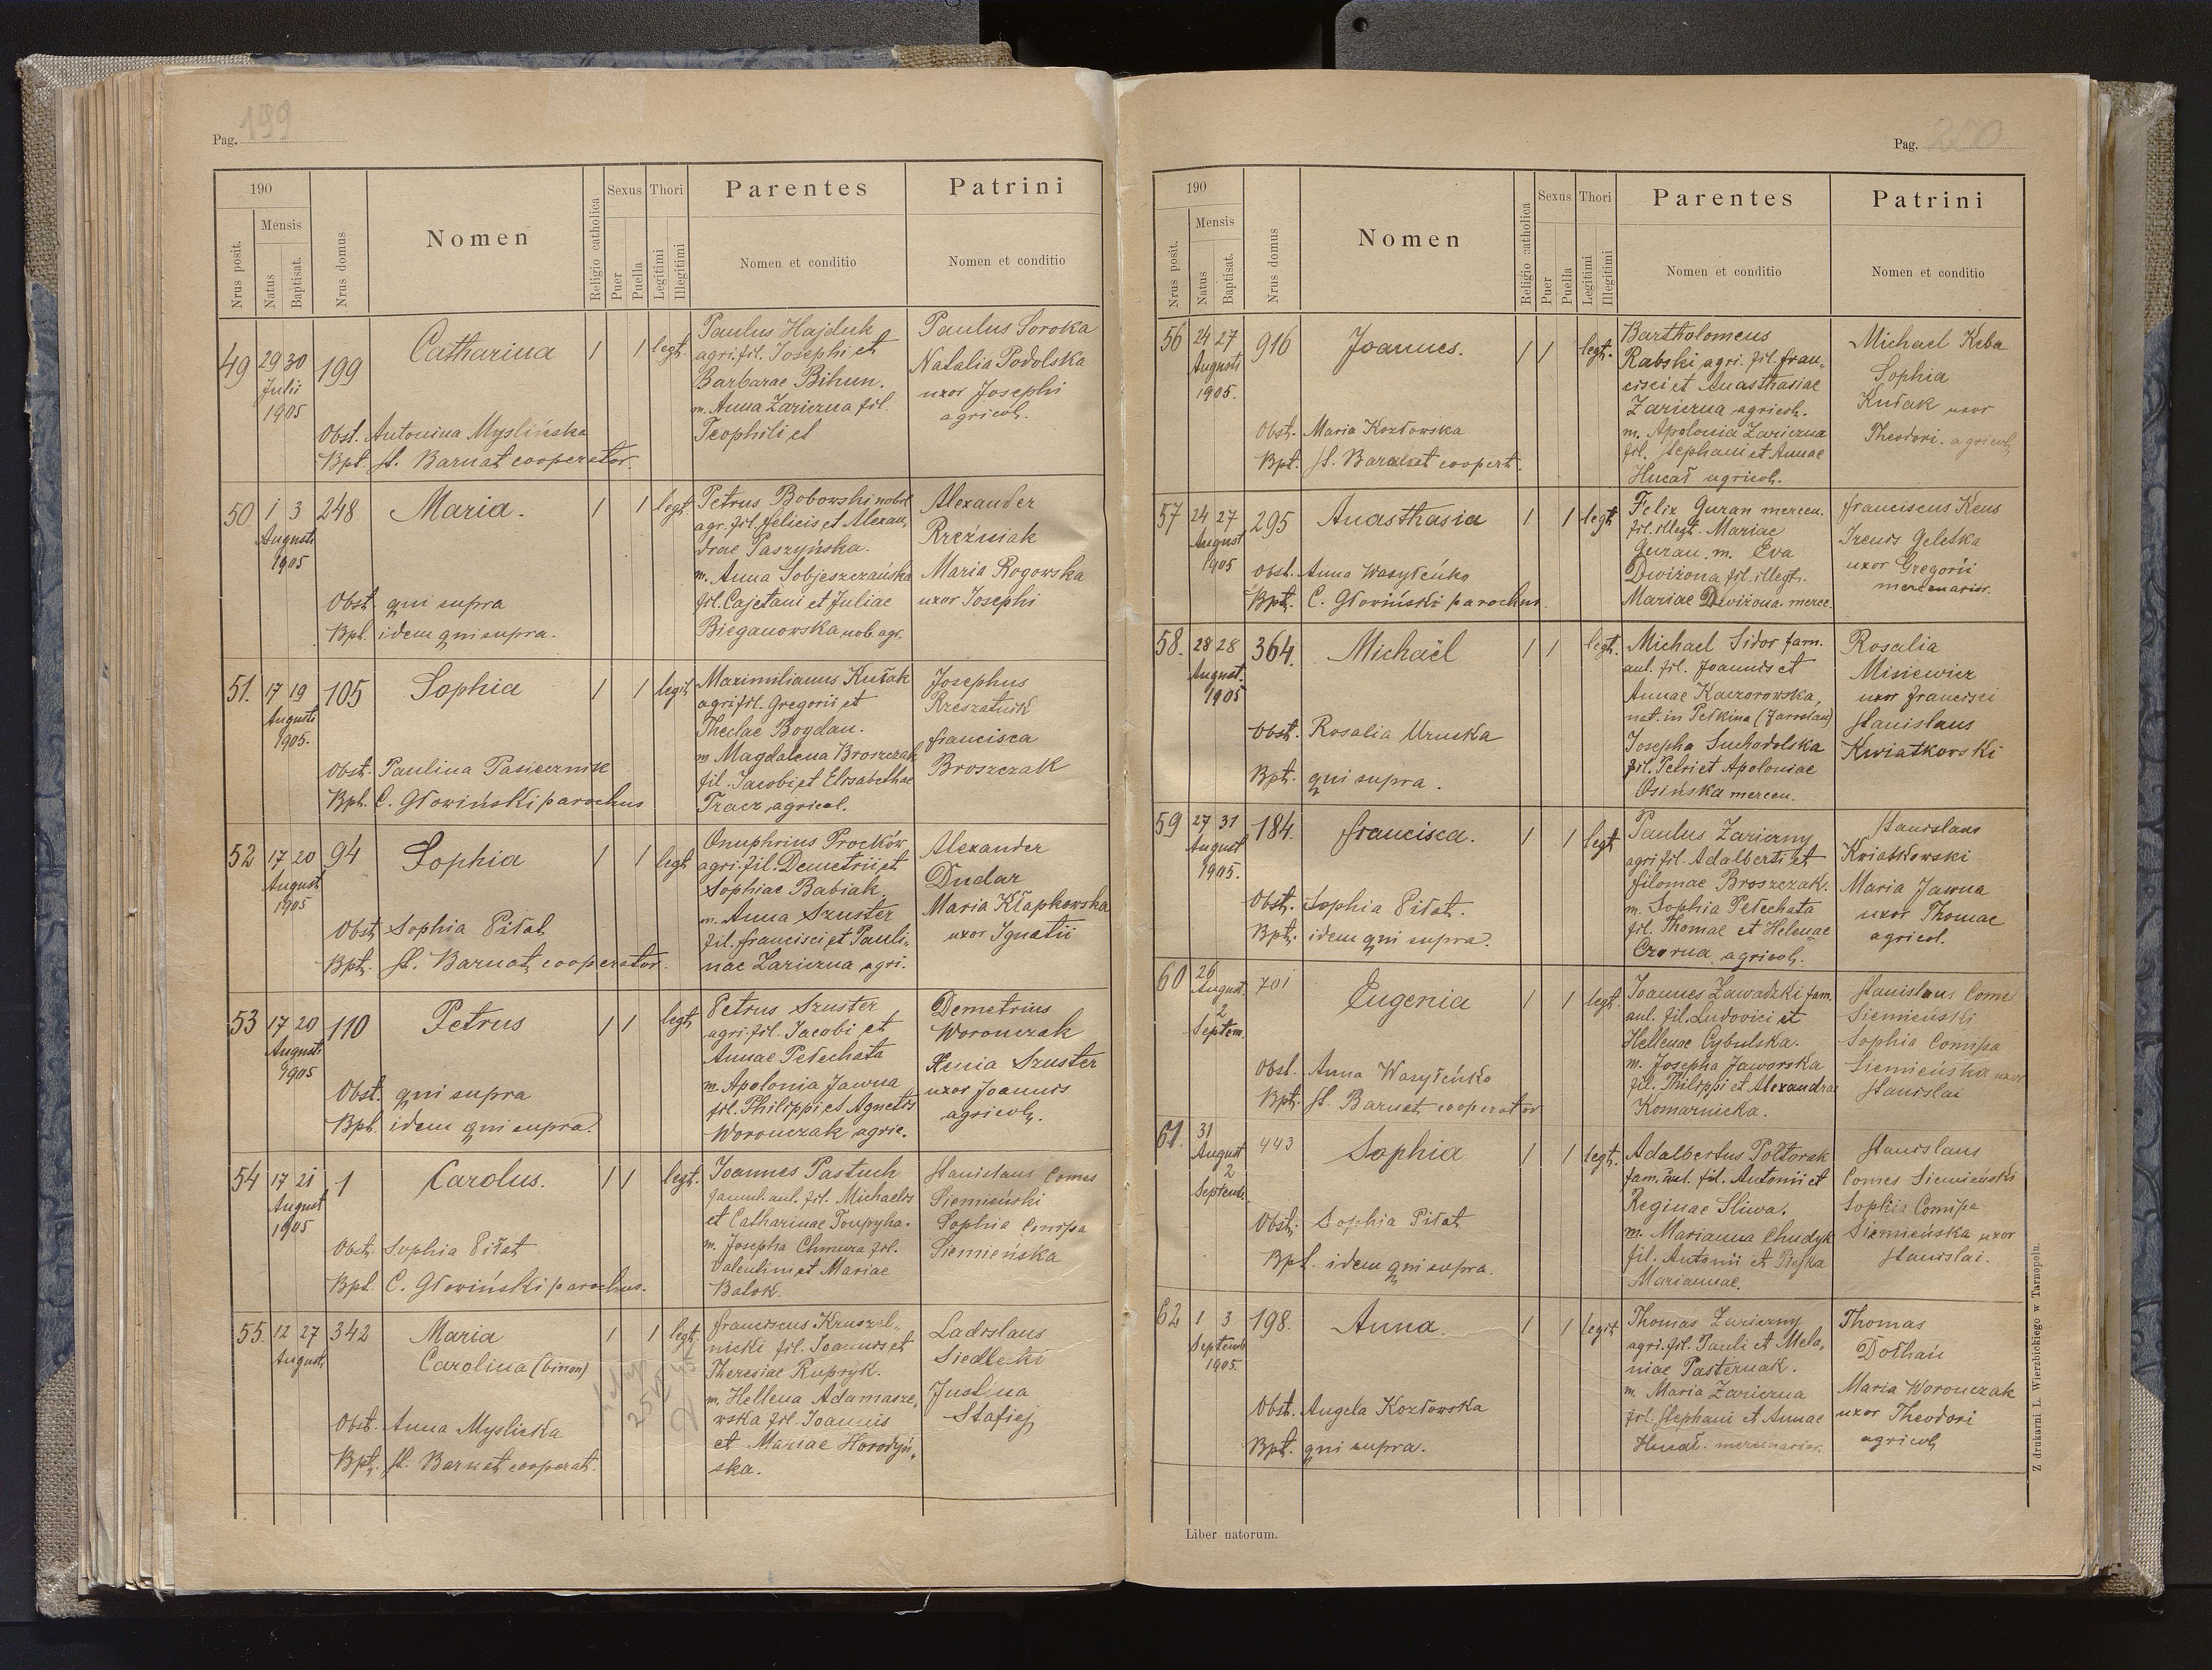 Pag. 199
190
Nrus posit.
Mensis
Natus
Baptisat.
Nrus domus
Nomen
Religio catholica
Sexus
Puer
Puella
Thori
Legitimi
Illegitimi
Parentes
Nomen et conditio
Patrini
Nomen et conditio
49 29 30 Julii 1905 199 Catharina 1 1 legt.
Paulus Hajduk
agri. fil. Josephi et
Barbarae Bihun.
m. Anna Zarierna fil.
Teophili et
Paulus Soroka
Natalia Podolska
uxor Josephi
agricol.
Obst. Antonina Myslińska
Bpt. St. Barnat cooperator.
50 1 3 Augusti 1905 248 Maria. 1 1 legt.
Petrus Bobowski nobil
agr. fil. Felicis et Alexan,
drae Paszyńska.
m. Anna Sobjeszczańska
fil. Cajetani et Juliae
Bieganowska nob. agr.
Alexander
Rzeźniak
Maria Rogowska
uxor Josephi
Obst. qui supra
Bpt. idem qui supra.
51. 17 19 Augusti 1905. 105 Sophia 1 1 legit
Maximilianus Kułak
agri fil. Gregorii et
Theclae Bogdan.
m Magdalena Broszczak
fil. Jacobi et Elisabethae
Tracz agricol.
Josephus
Rzeszatnik
Francisca
Broszczak
Obst. Paulina Pasiecznik
Bpt. C. Głowiński parochus
52 17 20 August 1905 94 Sophia 1 1 legt
Onuphrius Proćków
agri. fil. Demetrii et
Sophiae Babiak.
m. Anna Szuster
fil. Francisci et Pauli,
nae Zarierna agri.
Alexander
Dudar
Maria Kłapkowska
uxor Ignatii
Obst Sophia Piłat
Bpt. St. Barnat cooperator.
53 17 20 Augusti 1905 110 Petrus 1 1 legt
Petrus Szuster
agri. fil. Jacobi et
Annae Pełechata
m. Apolonia Jawna
fil. Philippi et Agnetis
Woronczak agric.
Demetrius
Woronczak
Xenia Szuster
uxor Joannis
agricol.
Obst. qui supra
Bpt. idem qui supra.
54 17 21 August 1905 1 Carolus. 1 1 legt.
Joannes Pastuch
famul. aul. fil. Michaelis
et Catharinae Toupyha.
m. Josepha Chmura fil.
Valentini et Mariae
Balok.
Stanislaus Comes
Siemieński
Sophia Comissa
Siemieńska
Obst. Sophia Piłat
Bpt. C. Głowiński parochus.
55. 12 27 August 342 Maria
Carolina (binom) 1 1 legt.
Franciscus Kruszel,
nicki fil. Joannis et
Theresiae Kupryk.
m. Hellena Adamasze,
wska fil. Joannis
et Mariae Horodyń,
ska.
Ladislaus
Siedlecki
Justina
Stafiej
Obst. Anna Myslicka
Bpt. St. Barnat cooperat.
Pag. 200
190
Nrus posit.
Mensis
Natus
Baptisat.
Nrus domus
Nomen
Religio catholica
Sexus
Puer
Puella
Thori
Legitimi
Illegitimi
Parentes
Nomen et conditio
Patrini
Nomen et conditio
56 24 27 Augusti 1905. 916 Joannes. 1 1 legt.
Bartholomeus
Rabski agri. fil. Fran,
cisci et Anasthasiae
Zarierna agricol.
m. Apolonia Zarierna
fil. Stephani et Annae
Hucał agricol.
Michael Keba
Sophia
Kułak uxor
Theodori. agricol,
Obst. Maria Kozłowska
Bpt. St. Baranat coopert.
57 24 27 August 1905 295 Anasthasia 1 1 legt
Felix Guran mercen.
fil. illegt. Mariae
Guran. m. Eva
Dwiżona fil. illegt.
Mariae Dwiżona. merce.
Franciscus Keus
Irenis Geletka
uxor Gregorii
mercenarior.
Obst. Anna Wasyłeńko
Bpt. C. Głowiński parochus.
58. 28 28 August. 1905 364. Michaël 1 1 legt.
Michael Sidor fam.
aul. fil. Joannis et
Annae Kaczorowska,
nat. in Pełkina (Jaroslau)
Josepha Suchodolska
fil. Petri et Apoloniae
Osińska mercen.
Rosalia
Misiewicz
uxor Francisci
Stanislaus
Kwiatkowski
Obst. Rosalia Uruska
Bpt. qui supra.
59 27 31 August 1905. 184. Francisca. 1 1 legt
Paulus Zarierny
agri fil. Adalberti et
Filomae Broszczak.
m. Sophia Pełechata
fil. Thomae et Helenae
Czorna agricol.
Stanislaus
Kwiatkowski
Maria Jawna
uxor Thomae
agricol.
Obst. Sophia Piłat.
Bpt. idem qui supra.
60 26 August. 2 Septem. 701 Eugenia 1 1 legt.
Joannes Zawadzki fam.
aul. fil. Ludovici et
Hellenae Cybulska.
m. Josepha Jaworska
fil. Philippi et Alexandrae
Komarnicka.
Stanislaus Comes
Siemieński
Sophia Comissa
Siemieńska uxor
Stanislai
Obst. Anna Wasyłeńko
Bpt. St. Barnat cooperator
61. 31 August 2 Septemb. 443 Sophia 1 1 legt.
Adalbertus Połtorak
fam. aul. fil. Antonii et
Reginae Sliwa.
m. Marianna Chudyk
fil. Antonii et
Mariannae.
Stanislaus
Comes Siemieński
Sophia Comissa
Siemieńska uxor
Stanislai.
Obst. Sophia Piłat
Bpt. idem qui supra.
62 1 3 Septemb 1905. 198. Anna. 1 1 legit
Thomas Zarierny
agri. fil. Pauli et Mela,
niae Pasternak.
m. Maria Zarierna
fil. Stephani et Annae
Hucał. mercenarior.
Thomas
Dołhań
Maria Woronczak
uxor Theodori
agricol,
Obst. Angela Kozłowska
Bpt. qui supra.
Liber natorum.
Z drukarni L. Wierzbickiego w Tarnopolu.